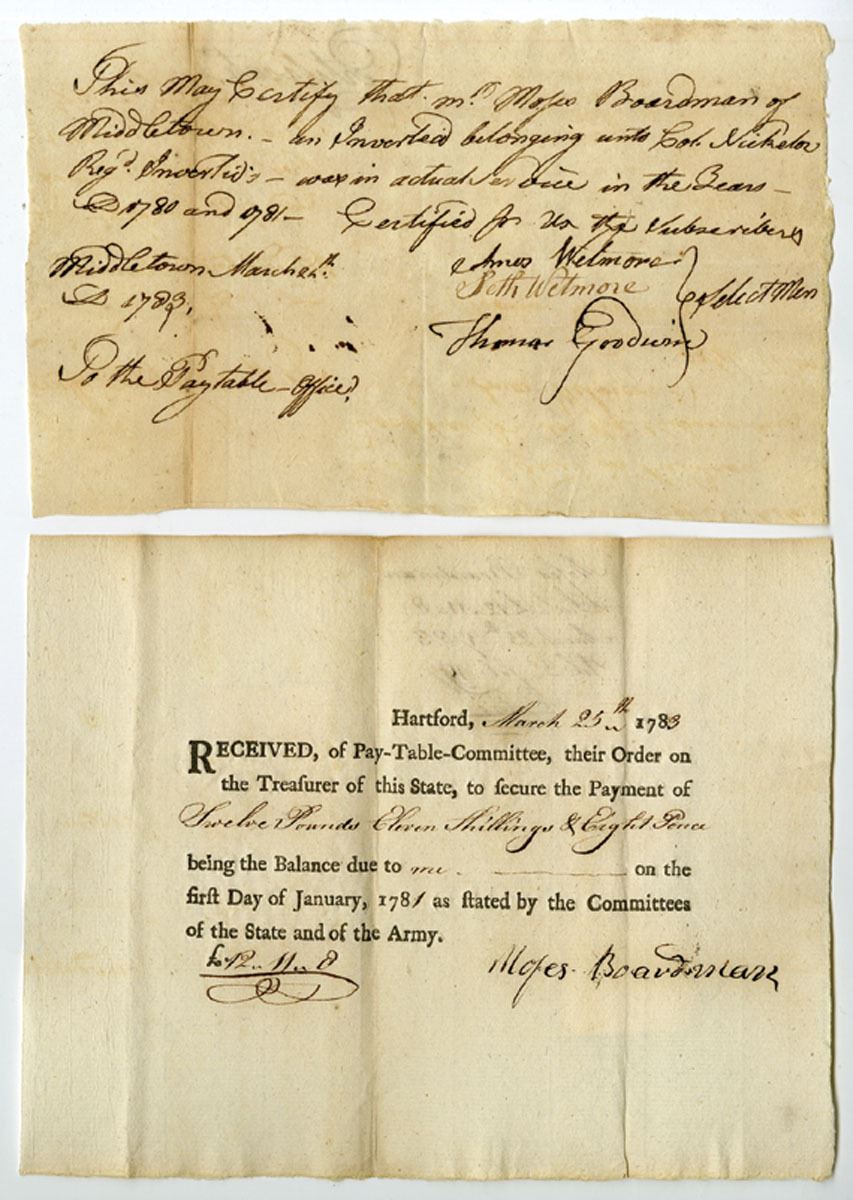 This May Certify that mr. Moses Boardman of
Middletown. - an Invertid belonging unto Col. Nichola
Regt. Invertid's - was in actual Service in the Years -
AD 1780 and 1781 - Certified for Us the Subscribers
Middletown March 24th.
AD 1783,
Amos Wetmore
Seth Wetmore
Thomas Goodwin
Select Men
To the Paytable - Office
Hartford, March 25th 1783
RECEIVED, of Pay-Table-Committee, their Order on
the Treaſurer of this State, to ſecure the Payment of
Twelve Pounds Eleven Shillings & Eight Pence
being the Balance due to me. on the
firſt Day of January, 1781 as ſtated by the Committees
of the State and of the Army.
£12.. 11.. 8
Moses Boardman